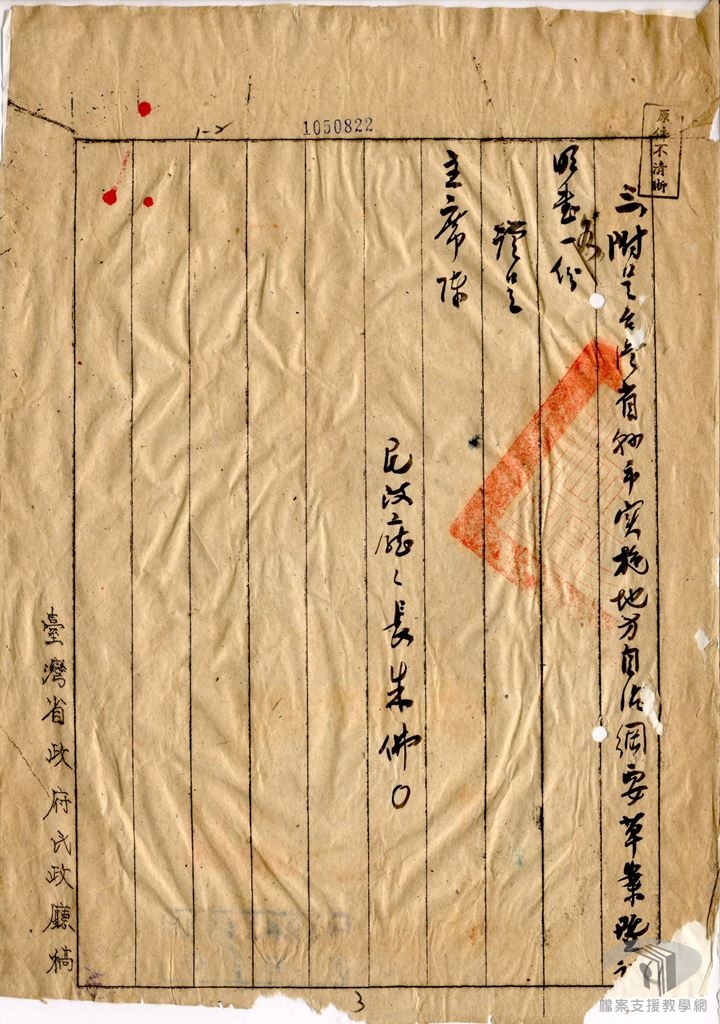 1050822
1-2
原件不清晰
三、附呈台灣省縣市实施地方自治綱要草案暨
明書各一份
謹呈
主席陳
民政廳〻長朱佛〇
臺灣省政府民政廳稿
3
檔案支援教學網